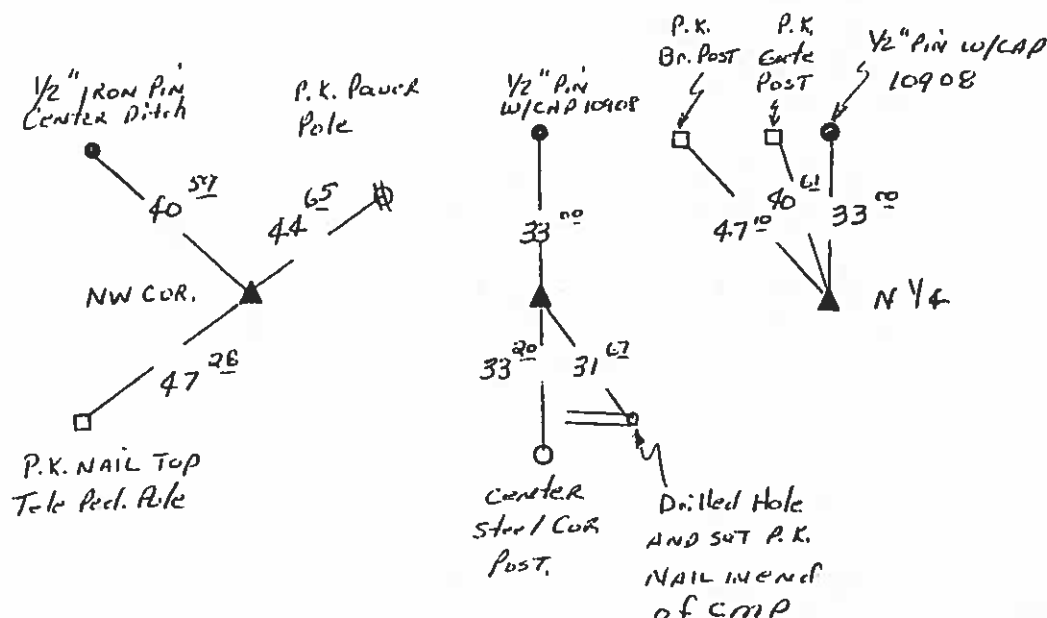 1/2" IRON PIN
CENTER DITCH
P.K. POWER
Pole
40
44 65
NW COR.
47 28
P.K. NAIL TOP
Tele Ped. Pole
1/2" PIN
W/CAP 10908
33 00
33 20
31 67
CENTER
Steel COR
POST.
Drilled Hole
AND SET P.K.
NAIL IN END
of CMP
P.K.
Br. POST
P.K.
GATE
POST
1/2" PIN W/CAP
10908
47 10
40 61
33 00
N 1/4